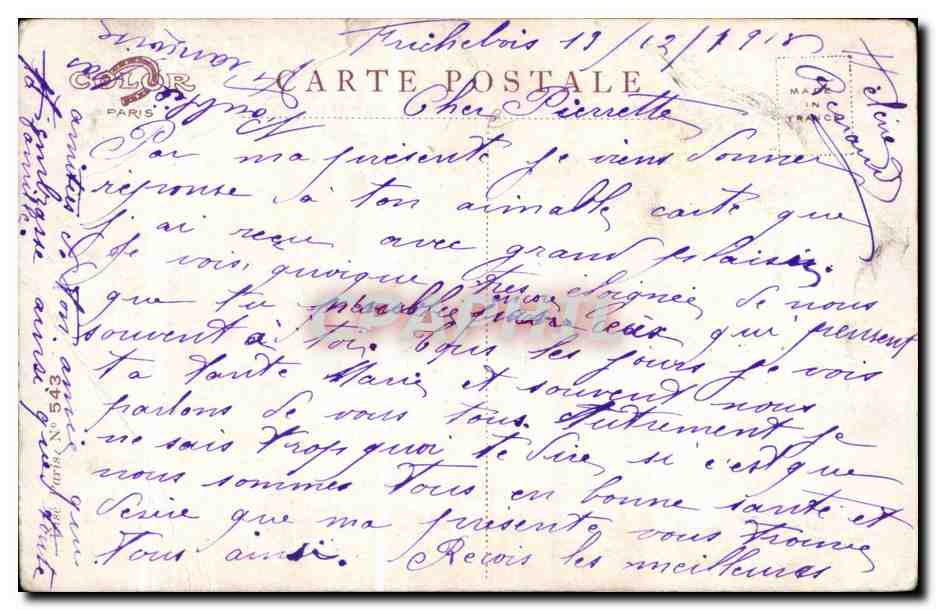 COLOR
PARIS
CARTE POSTALE
MADE
IN
FRANCE
Frichebois 19/12/1918
Cher Pierrette
Par ma présente je viens donner
réponse à ton aimable carte que
j'ai reçu avec grand plaisir.
Je vois, quoique très éloignée de nous
que tu n'oublie pas encore ceux qui pensent
souvent à toi. Tous les jours je vois
ta tante Marie et souvent nous
parlons de vous tous. Autrement je
ne sais trop quoi te dire si c'est que
nous sommes tous en bonne santé et
désire que ma présente vous trouve
tous ainsi. Reçois les meilleures
amitiés de ton amie qui
t'embrasse ainsi que toute
ta famille.
Hélène
N° 543